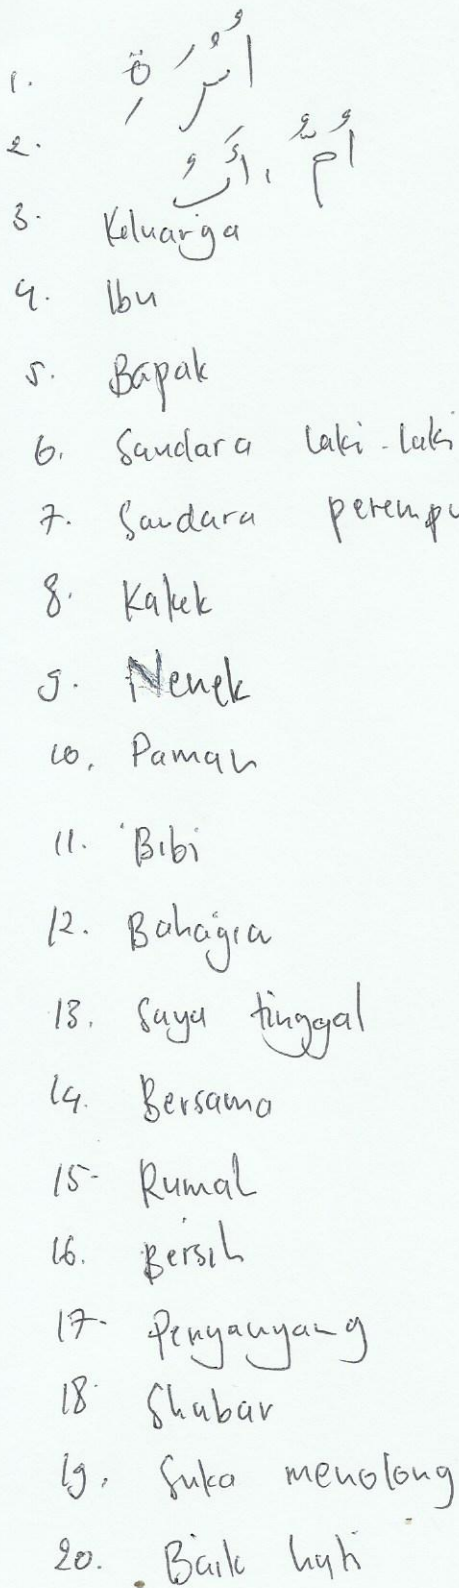 1. أُسْرَةِ
2. أُمٌّ ، أَبُ
3. Keluarga
4. Ibu
5. Bapak
6. Saudara laki-laki
7. Saudara perempu
8. Kakek
9. Nenek
10. Paman
11. Bibi
12. Bahagia
13. Saya tinggal
14. Bersama
15. Rumah
16. Bersih
17. Penyanyang
18 Shabar
19. Suka menolong
20. Baik hati